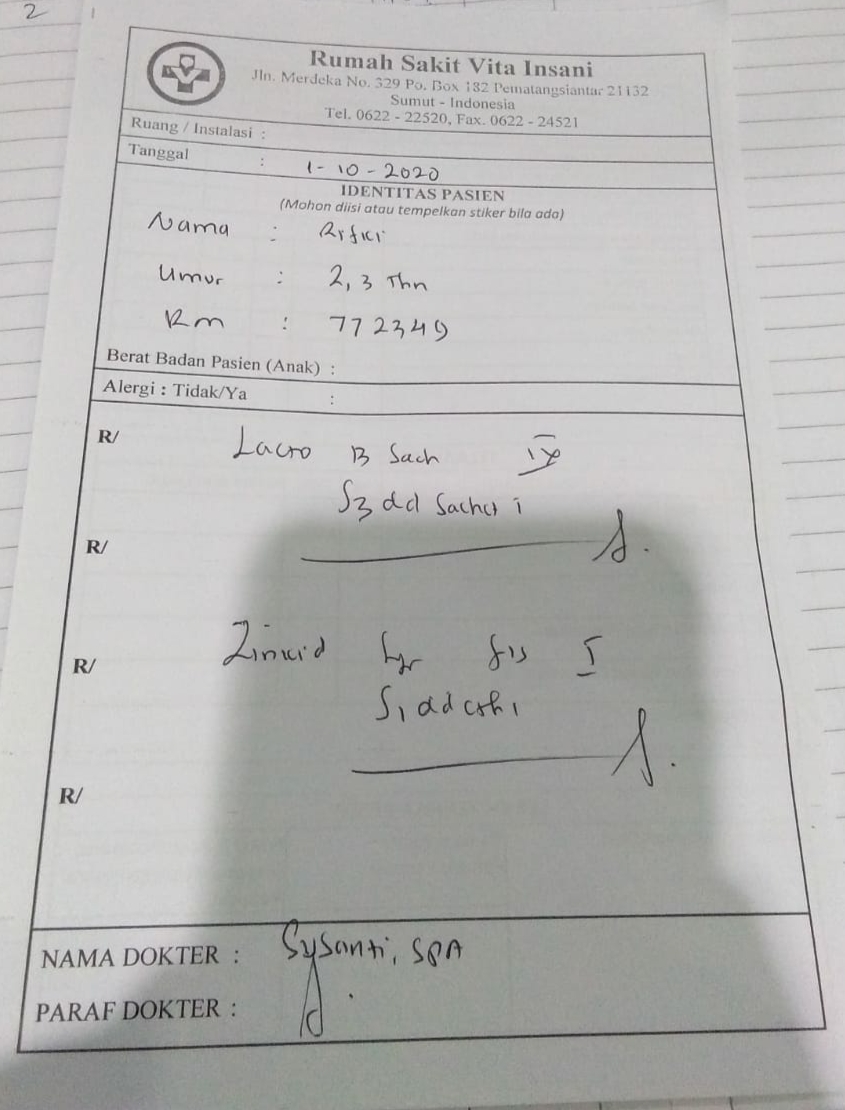 2
Rumah Sakit Vita Insani
Jln. Merdeka No. 329 Po. Box 182 Pematangsiantar 21132
Sumut - Indonesia
Tel. 0622 - 22520, Fax. 0622 - 24521
Ruang / Instalasi :
Tanggal : 1-10-2020
IDENTITAS PASIEN
(Mohon diisi atau tempelkan stiker bila ada)
Nama :
Umur : 2,3 Thn
Rm : 772349
Berat Badan Pasien (Anak) :
Alergi : Tidak/Ya :
R/ Lacto B Sach
S3 dd Sachet i
R/
R/ fls I
S1 dd cth 1
R/
NAMA DOKTER : Sysanti, SPA
PARAF DOKTER :